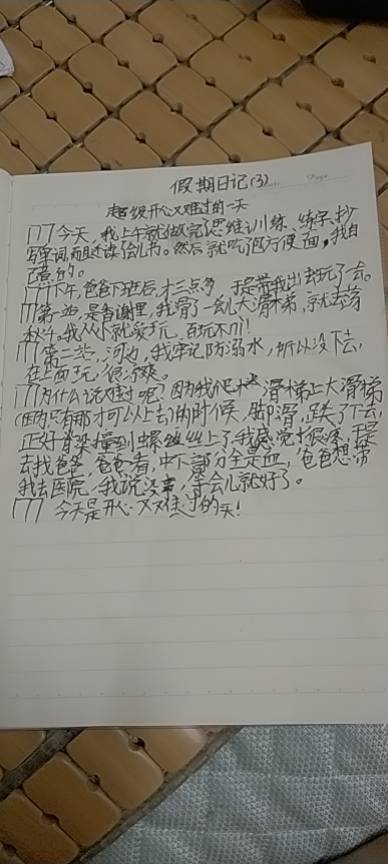 假期日记(3)
Page
超级开心又难过的一天
今天,我上午就做完了思维训练、练字、抄
写字词,而且读了会儿书。然后就吃了包方便面,我自
己煮的。
下午,爸爸下班后,才三点多,于是带我出去玩了一会。
第一站,是香谢里,我滑了一会儿大滑梯,就去荡
秋千。我从小就爱玩,百玩不
第二站,河边,我牢记防溺水,所以没下去,
在上面玩,很凉爽。
为什么说难过呢?因为我爬 滑梯上大滑梯
(因为只有那才可以上去)的时候,脚滑,跌了下去,
正好 撞到螺丝丝上了,我感觉很疼,于是
去找爸爸,爸爸看,中下部分全是血,爸爸想带
我去医院,我说没事,等会儿就好了。
今天是开心又难过的一天!